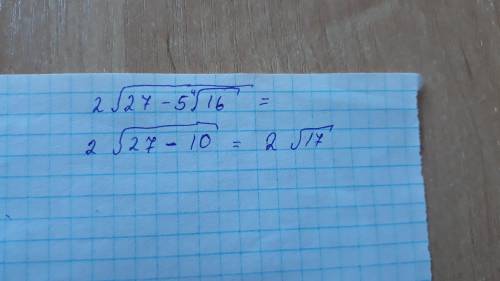 2√(27 - 5⁴√16) =
2√(27 - 10) = 2√17